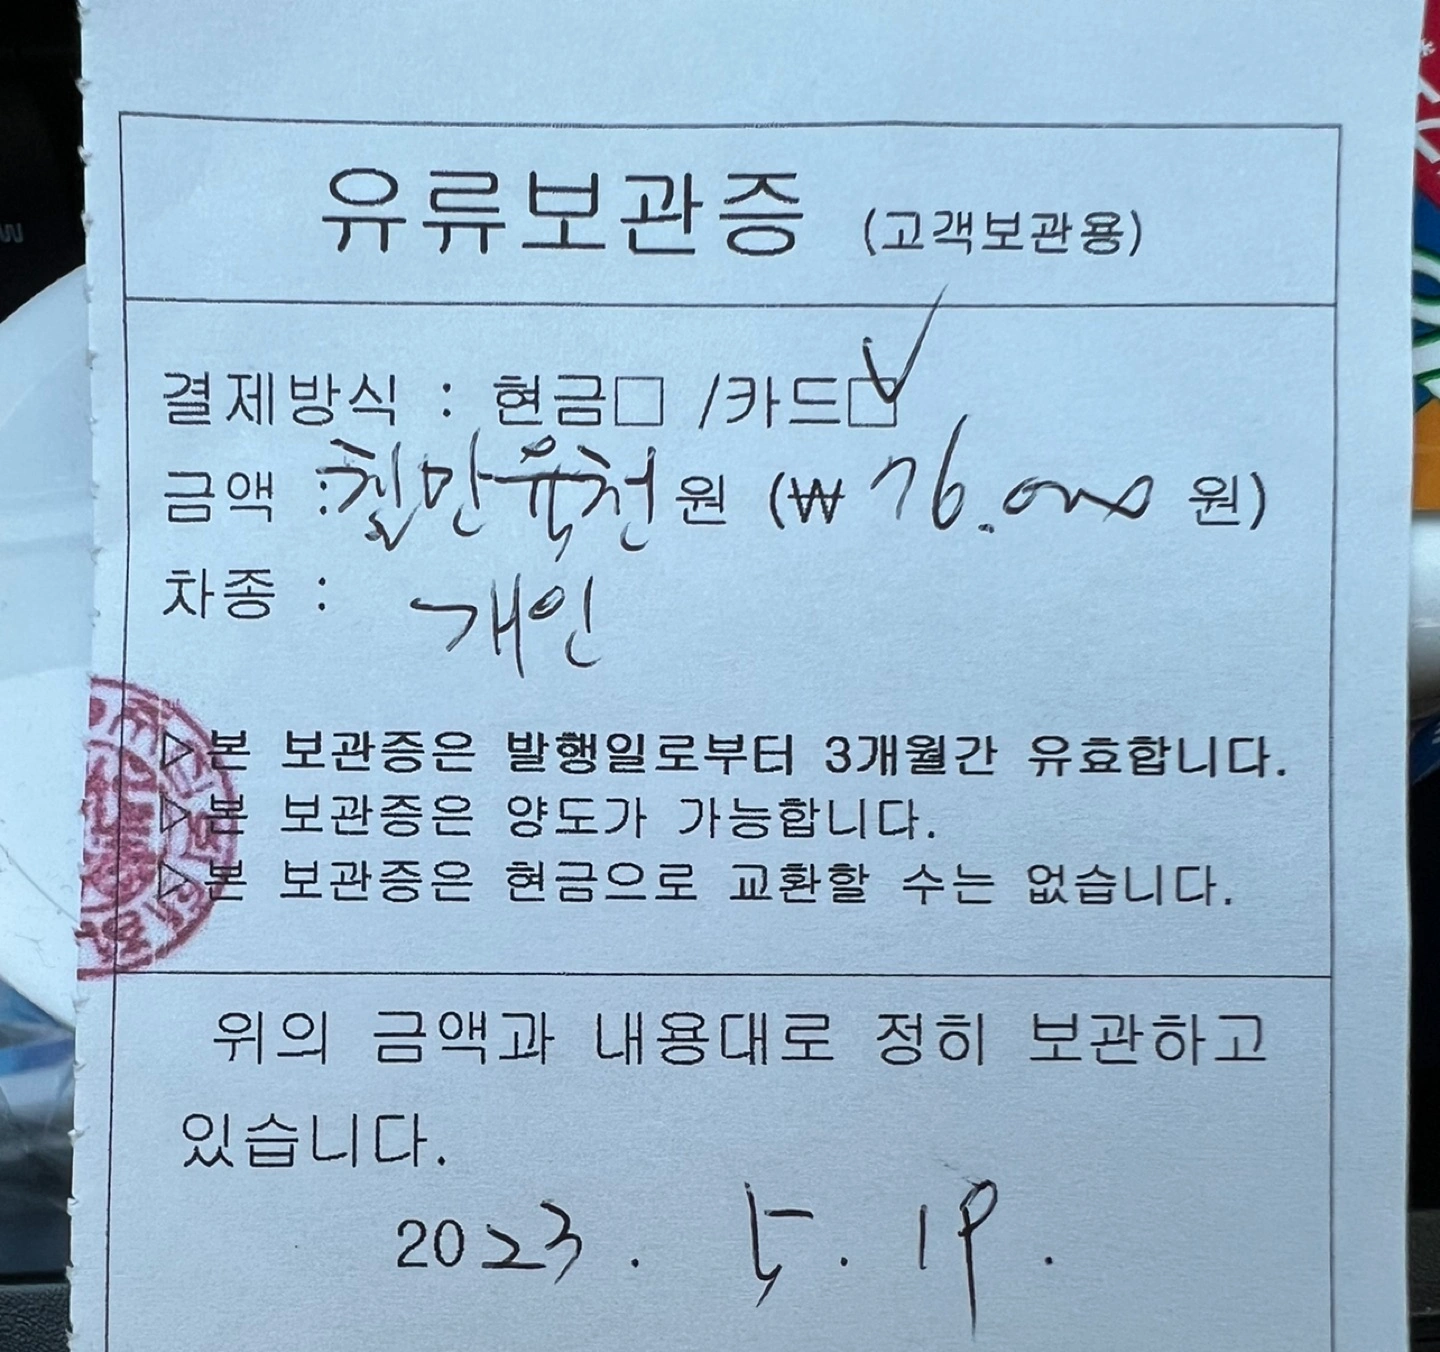 유류보관증 (고객보관용)
결제방식 : 현금□ /카드☑
금액 : 칠만육천원 (₩ 76.000 원)
차종 : 개인
▷본 보관증은 발행일로부터 3개월간 유효합니다.
▷본 보관증은 양도가 가능합니다.
▷본 보관증은 현금으로 교환할 수는 없습니다.
위의 금액과 내용대로 정히 보관하고
있습니다.
2023. 5. 19.